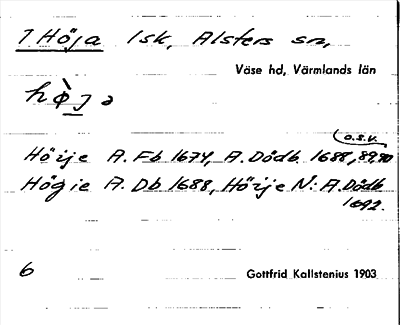 1 Höja 1sk, Alsters sn,
Väse hd, Värmlands län
hø̀jə
o.s.v.
Höije A. Fb 1674, A. Dödb 1688, 89, 90
Högie A. Db 1688, Höije N: A. Dödb
1692.
6 Gottfrid Kallstenius 1903